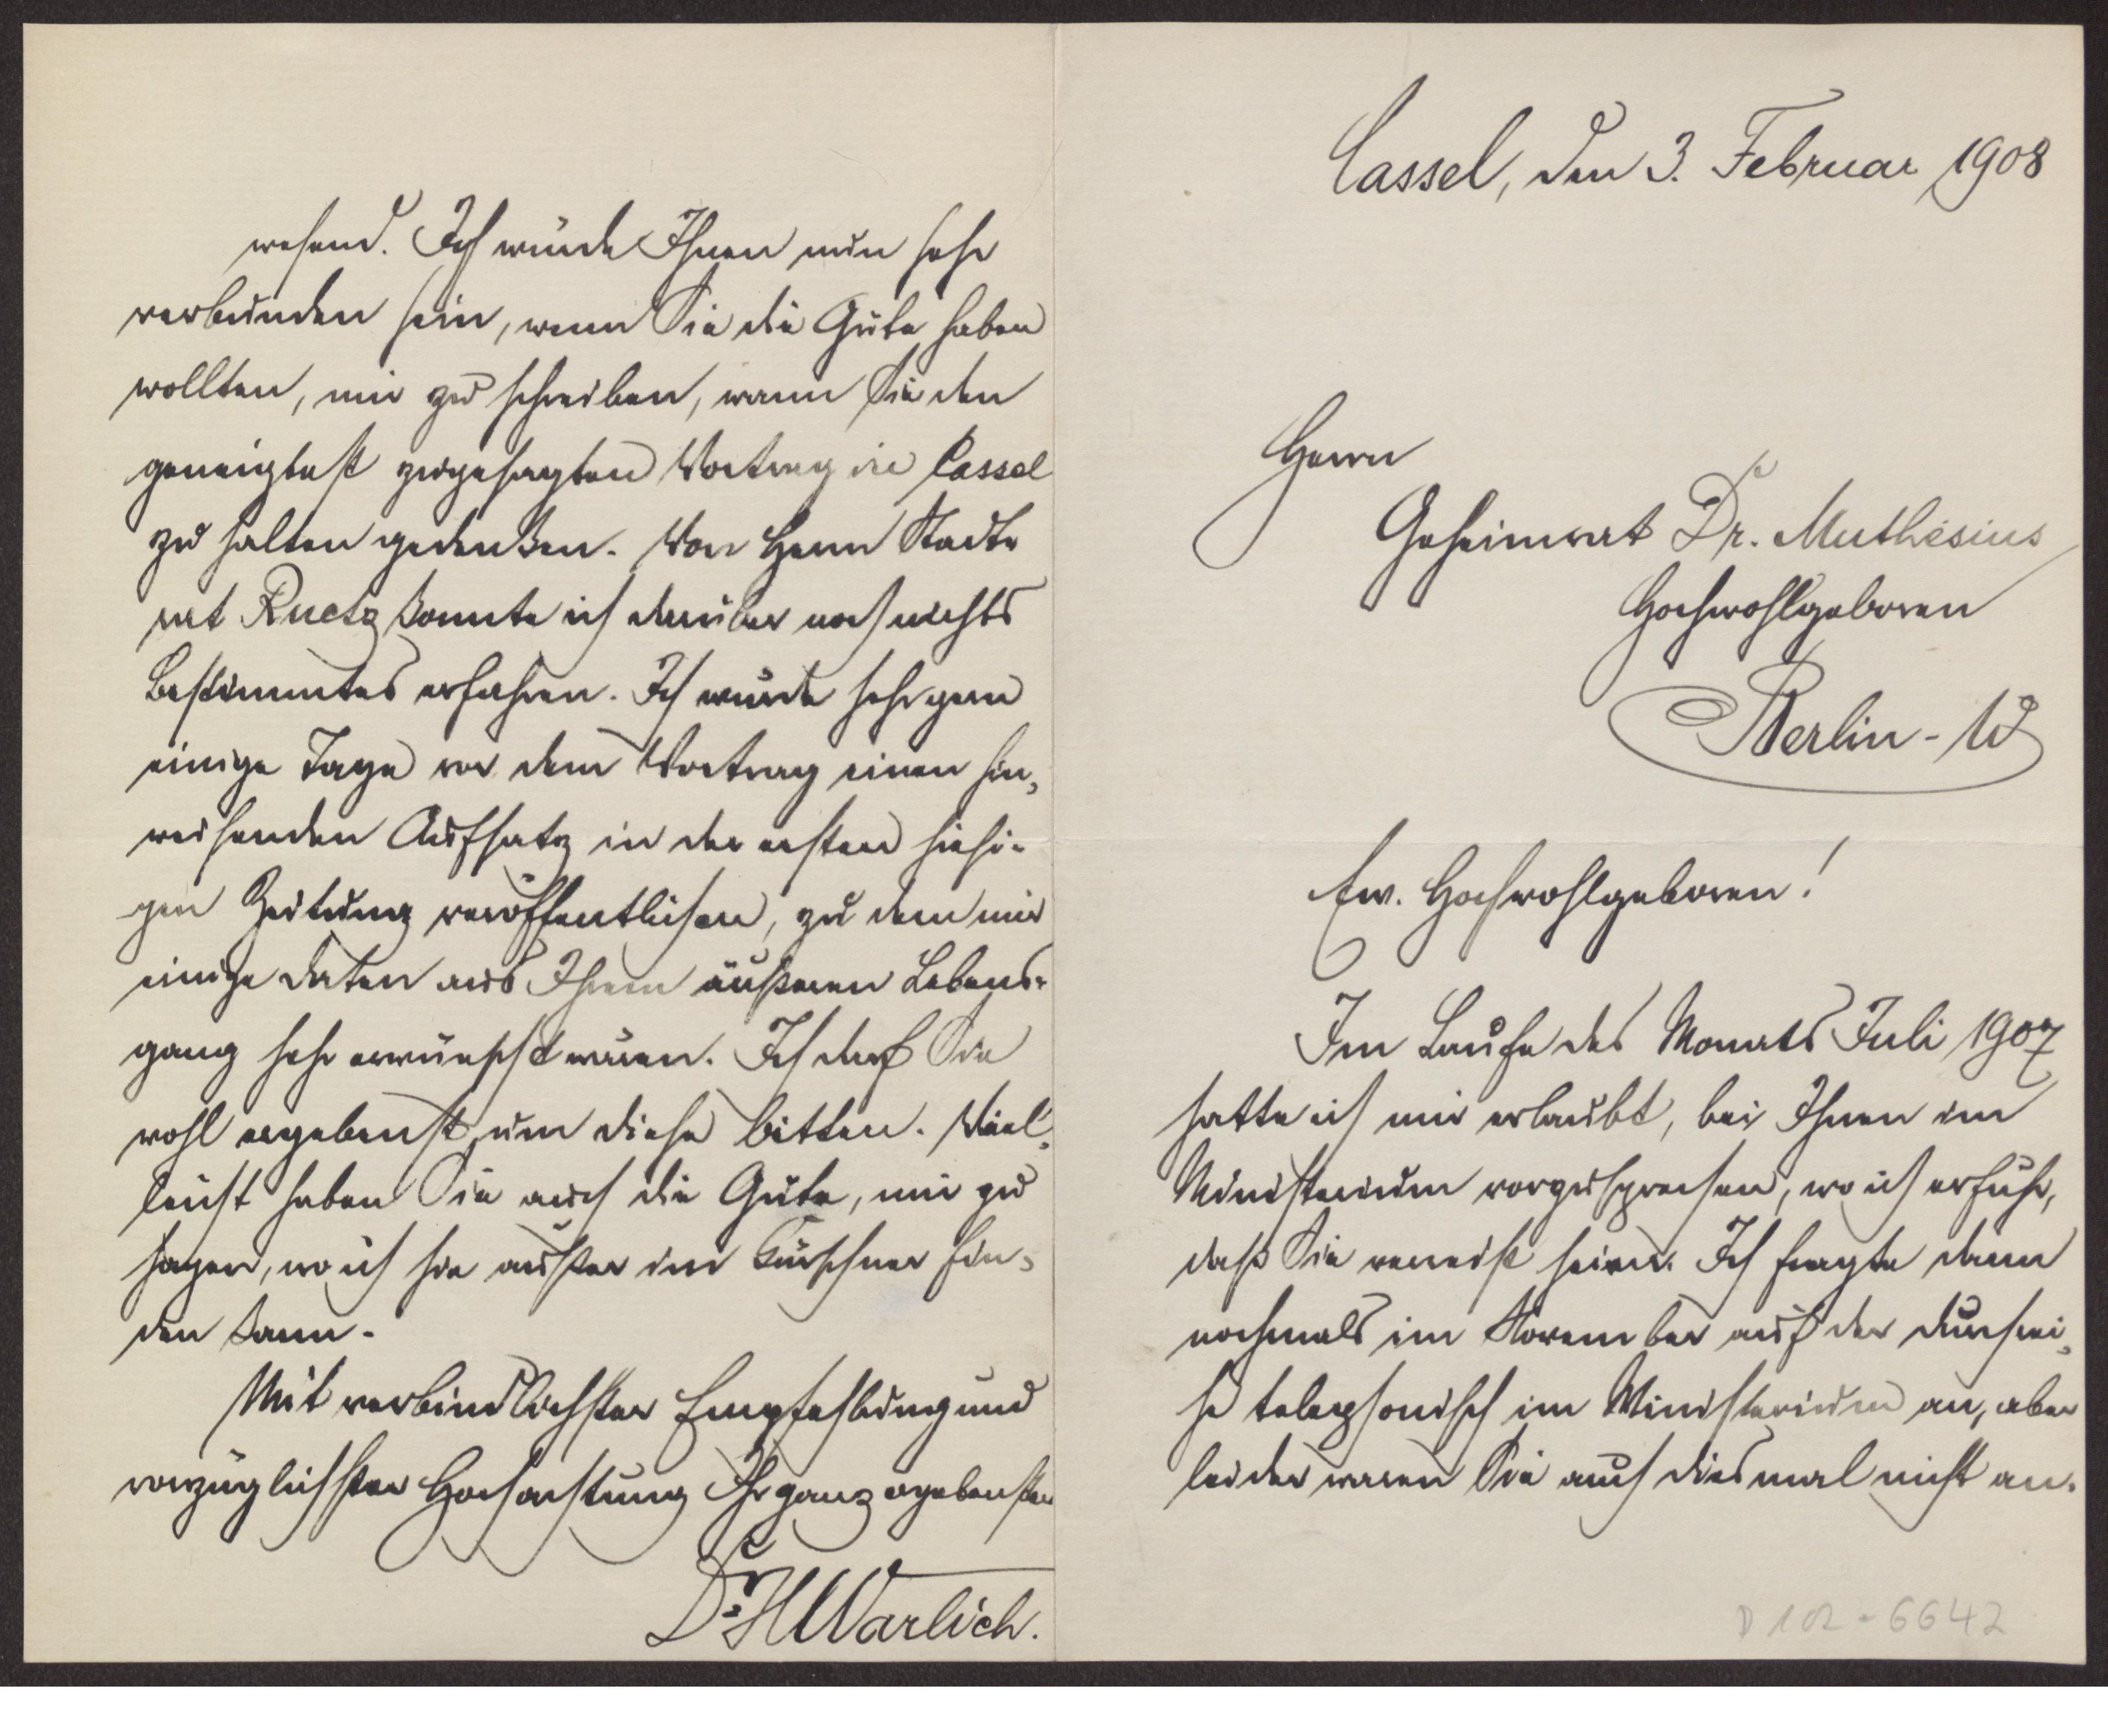 Cassel, den 3. Februar 1908
Herrn
Geheimrat Dr. Muthesius
Hochwohlgeboren
Berlin-W
Ew. Hochwohlgeboren!
Im Laufe des Monats Juli 1907
hatte ich mir erlaubt, bei Ihnen im
Ministerium vorzusprechen, wo ich erfuhr,
daß Sie verreist seien. Ich fragte dann
nochmals im November auf der Durchrei-
se telephonisch im Ministerium an, aber
leider waren Sie auch diesmal nicht an-
D 102-6642
wesend. Ich würde Ihnen nun sehr
verbunden sein, wenn Sie die Güte haben
wollten, mir zu schreiben, wann Sie den
geneigtest zugesagten Vortrag in Cassel
zu halten gedenken. Von Herrn Stadt-
rat Ruetz konnte ich darüber noch nichts
Bestimmtes erfahren. Ich würde sehr gern
einige Tage vor dem Vortrag einen hin-
weisenden Aufsatz in der ersten hiesi-
gen Zeitung veröffentlichen, zu dem mir
einige Daten aus Ihrem äußeren Lebens-
gang sehr erwünscht wären. Ich darf Sie
wohl ergebenst um diese bitten. Viel-
leicht haben Sie auch die Güte, mir zu
sagen, wo ich sie außer im Kürschner fin-
den kann.
Mit verbindlichster Empfehlung und
vorzüglichster Hochachtung Ihr ganz ergebenster
Dr. H Warlich.